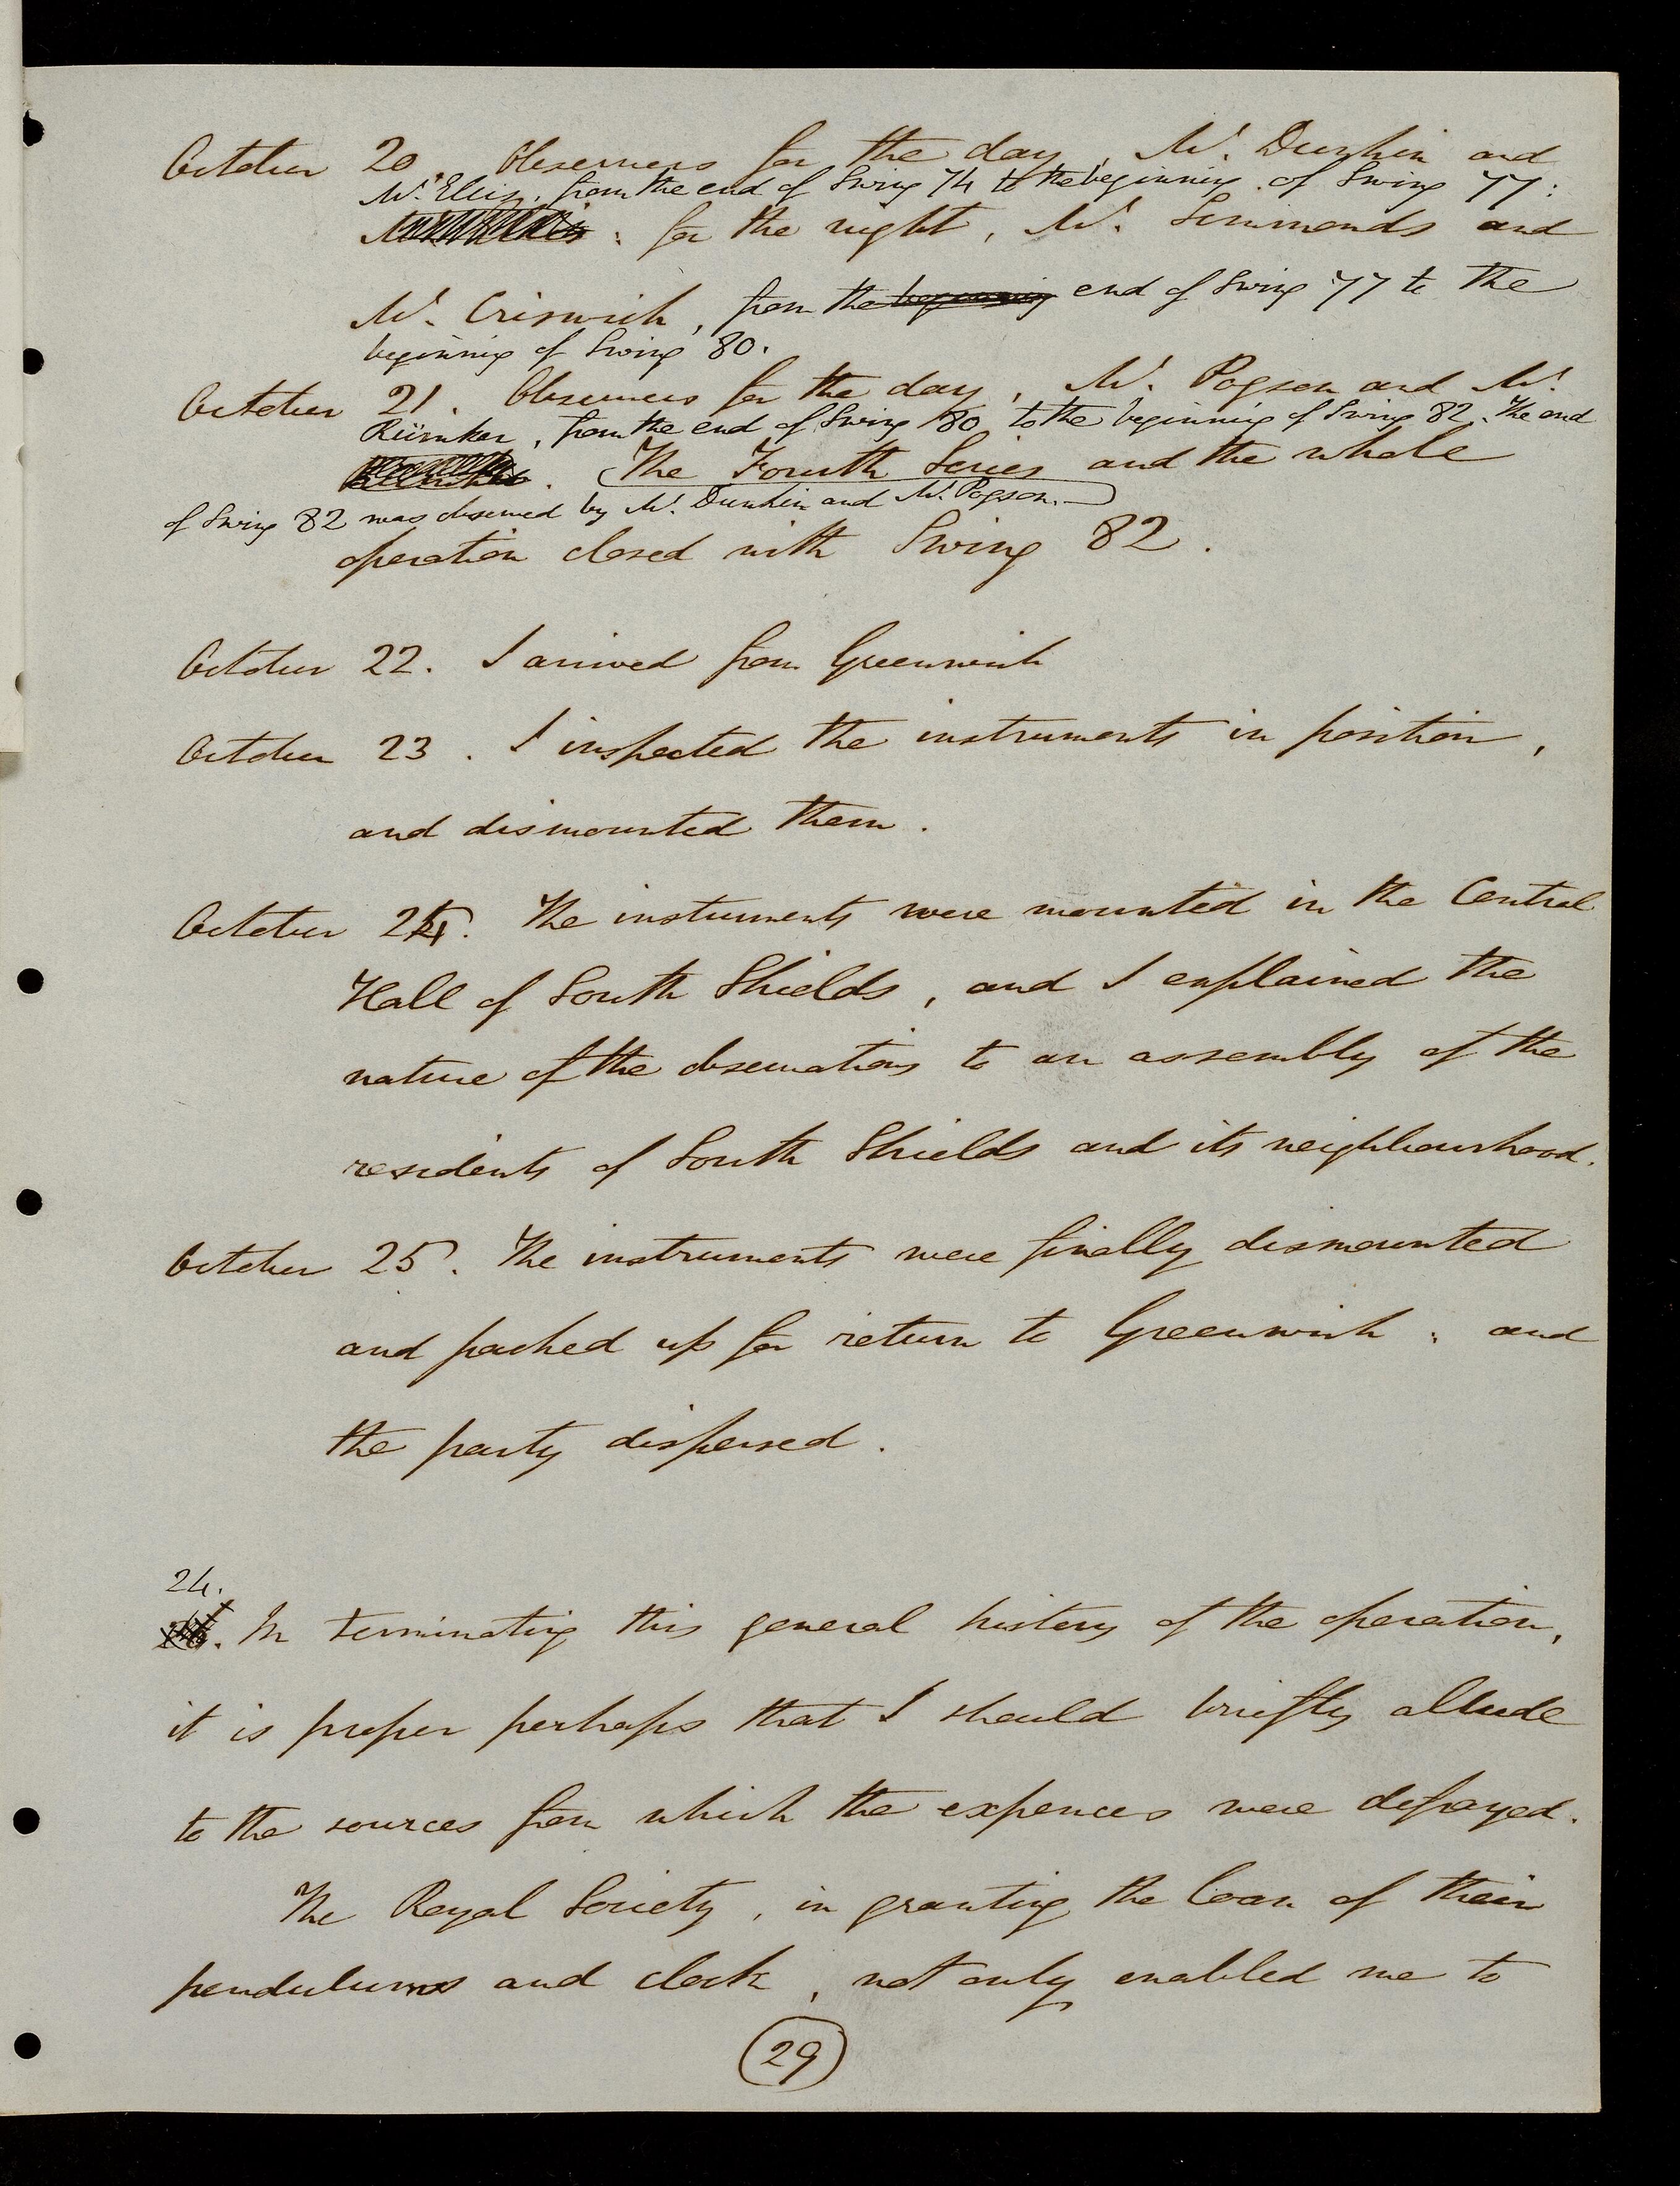 October 20. Observers for the day, Mr. Dunkin and
Mr. Ellis, from the end of Swing 74 to the beginning of Swing 77:
: for the night, Mr. Simmonds and
Mr. Criswick, from the beginning end of Swing 77 to the
beginning of Swing 80.
October 21. Observers for the day, Mr. Pogson and Mr.
Rümker, from the end of Swing 80 to the beginning of Swing 82. The end
. The Fourth Series and the whole
of Swing 82 was observed by Mr. Dunkin and Mr. Pogson.
operation closed with Swing 82.
October 22. I arrived from Greenwich
October 23. I inspected the instruments in position,
and dismounted them.
October 24. The instruments were mounted in the Central
Hall of South Shields, and I explained the
nature of the observations to an assembly of the
residents of South Shields and its neighbourhood.
October 25. The instruments were finally dismounted
and packed up for return to Greenwich: and
the party dispersed.
24.
In terminating this general history of the operation,
it is proper perhaps that I should briefly allude
to the sources from which the expences were defrayed.
The Royal Society, in granting the loan of their
pendulums and clock, not only enabled me to
29